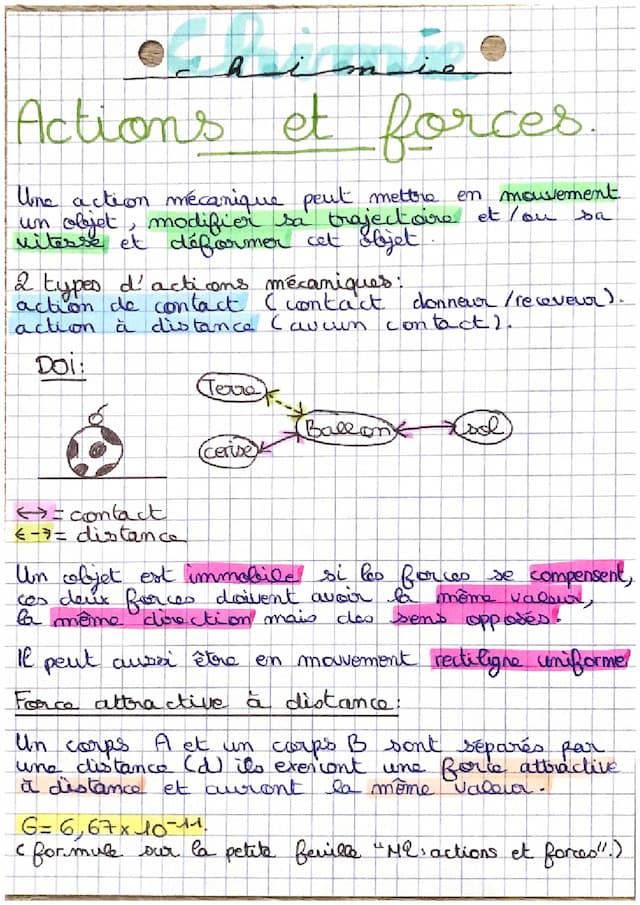 Chimie
Chimie
Actions et forces.
Une action mécanique peut mettre en mouvement
un objet, modifier sa trajectoire et/ou sa
vitesse et déformer cet objet.
2 types d'actions mécaniques:
action de contact (contact donneur/receveur).
action à distance (aucun contact).
DOI:
Terre
Ballon
sol
cerise
<-> = contact
<--> = distance
Un objet est immobile si les forces se compensent,
ces deux forces doivent avoir la même valeur,
la même direction mais des sens opposés.
Il peut aussi être en mouvement rectiligne uniforme
Force attractive à distance:
Un corps A et un corps B sont séparés par
une distance (d) ils exercont une force attractive
à distance et auront la même valeur.
G = 6,67 x 10⁻¹¹.
(formule sur la petite feuille "M2: actions et forces".)